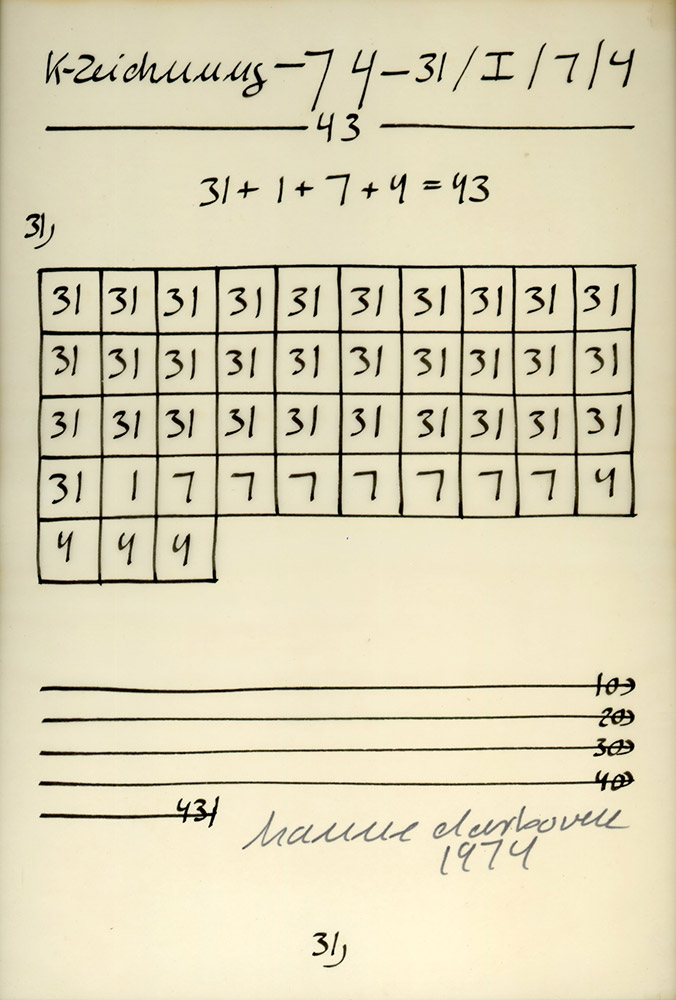 K-Zeichnung – 74 – 31/I/7/4
43
31 + 1 + 7 + 4 = 43
31,
31 31 31 31 31 31 31 31 31 31
31 31 31 31 31 31 31 31 31 31
31 31 31 31 31 31 31 31 31 31
31 1 7 7 7 7 7 7 7 4
4 4 4
10
20
30
40
43
hanne darboven
1974
31,